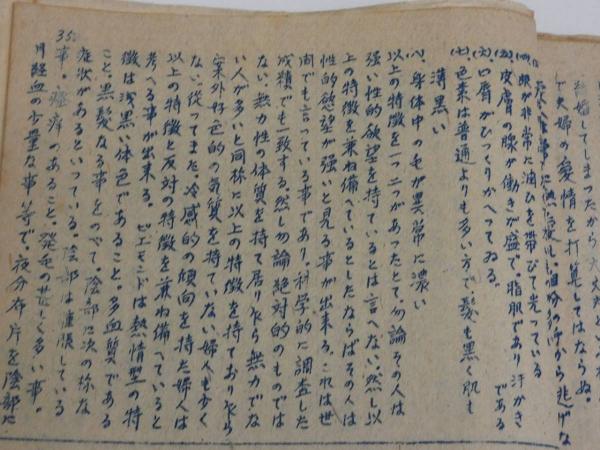 結婚してしまったから大丈夫だといふ
で夫婦の愛情を打算してはならぬ。
から逃げな
(四)、眼が非常に潤ひを帯びて光っている
(五)、皮膚の腺が働きが盛で、脂肌であり汗かきである
(六)、口唇がびっくりかへってゐる。
(七)、色素は普通よりも多い方で、髪も黒く肌も
薄黒い
(八)、身体中の毛が異常に濃い
以上の特徴を一つ二つがあったとて、勿論その人は
強い性的欲望を持ているとは言へない。然し以
上の特徴を兼ね備へているとしたならばその人は
性的欲望が強いと見る事が出来る。これは世
間でも言っている事であり、科学的に調査した
成績でも一致する。然し勿論絶対的のものでは
ない。無力性の体質を持て居りながら無力でな
い人が多いと同様に以上の特徴を持ておりながら
案外好色的の気質を持ていない婦人も少く
ない。従ってまた、冷感的の傾向を持た婦人は
以上の特徴と反対の特徴を兼ね備へていると
考へる事が出来る。 ピエモンドは熱情型の特
徴は浅黒い体色であること。多血質である
こと、黒髪なる事をのべて。陰部に次の様な
症状があるといっている。陰部は腫脹している
35.
事。瘙痒のあること。発毛の甚しく多い事。
月経血の少量な事等で、夜分布片を陰部に